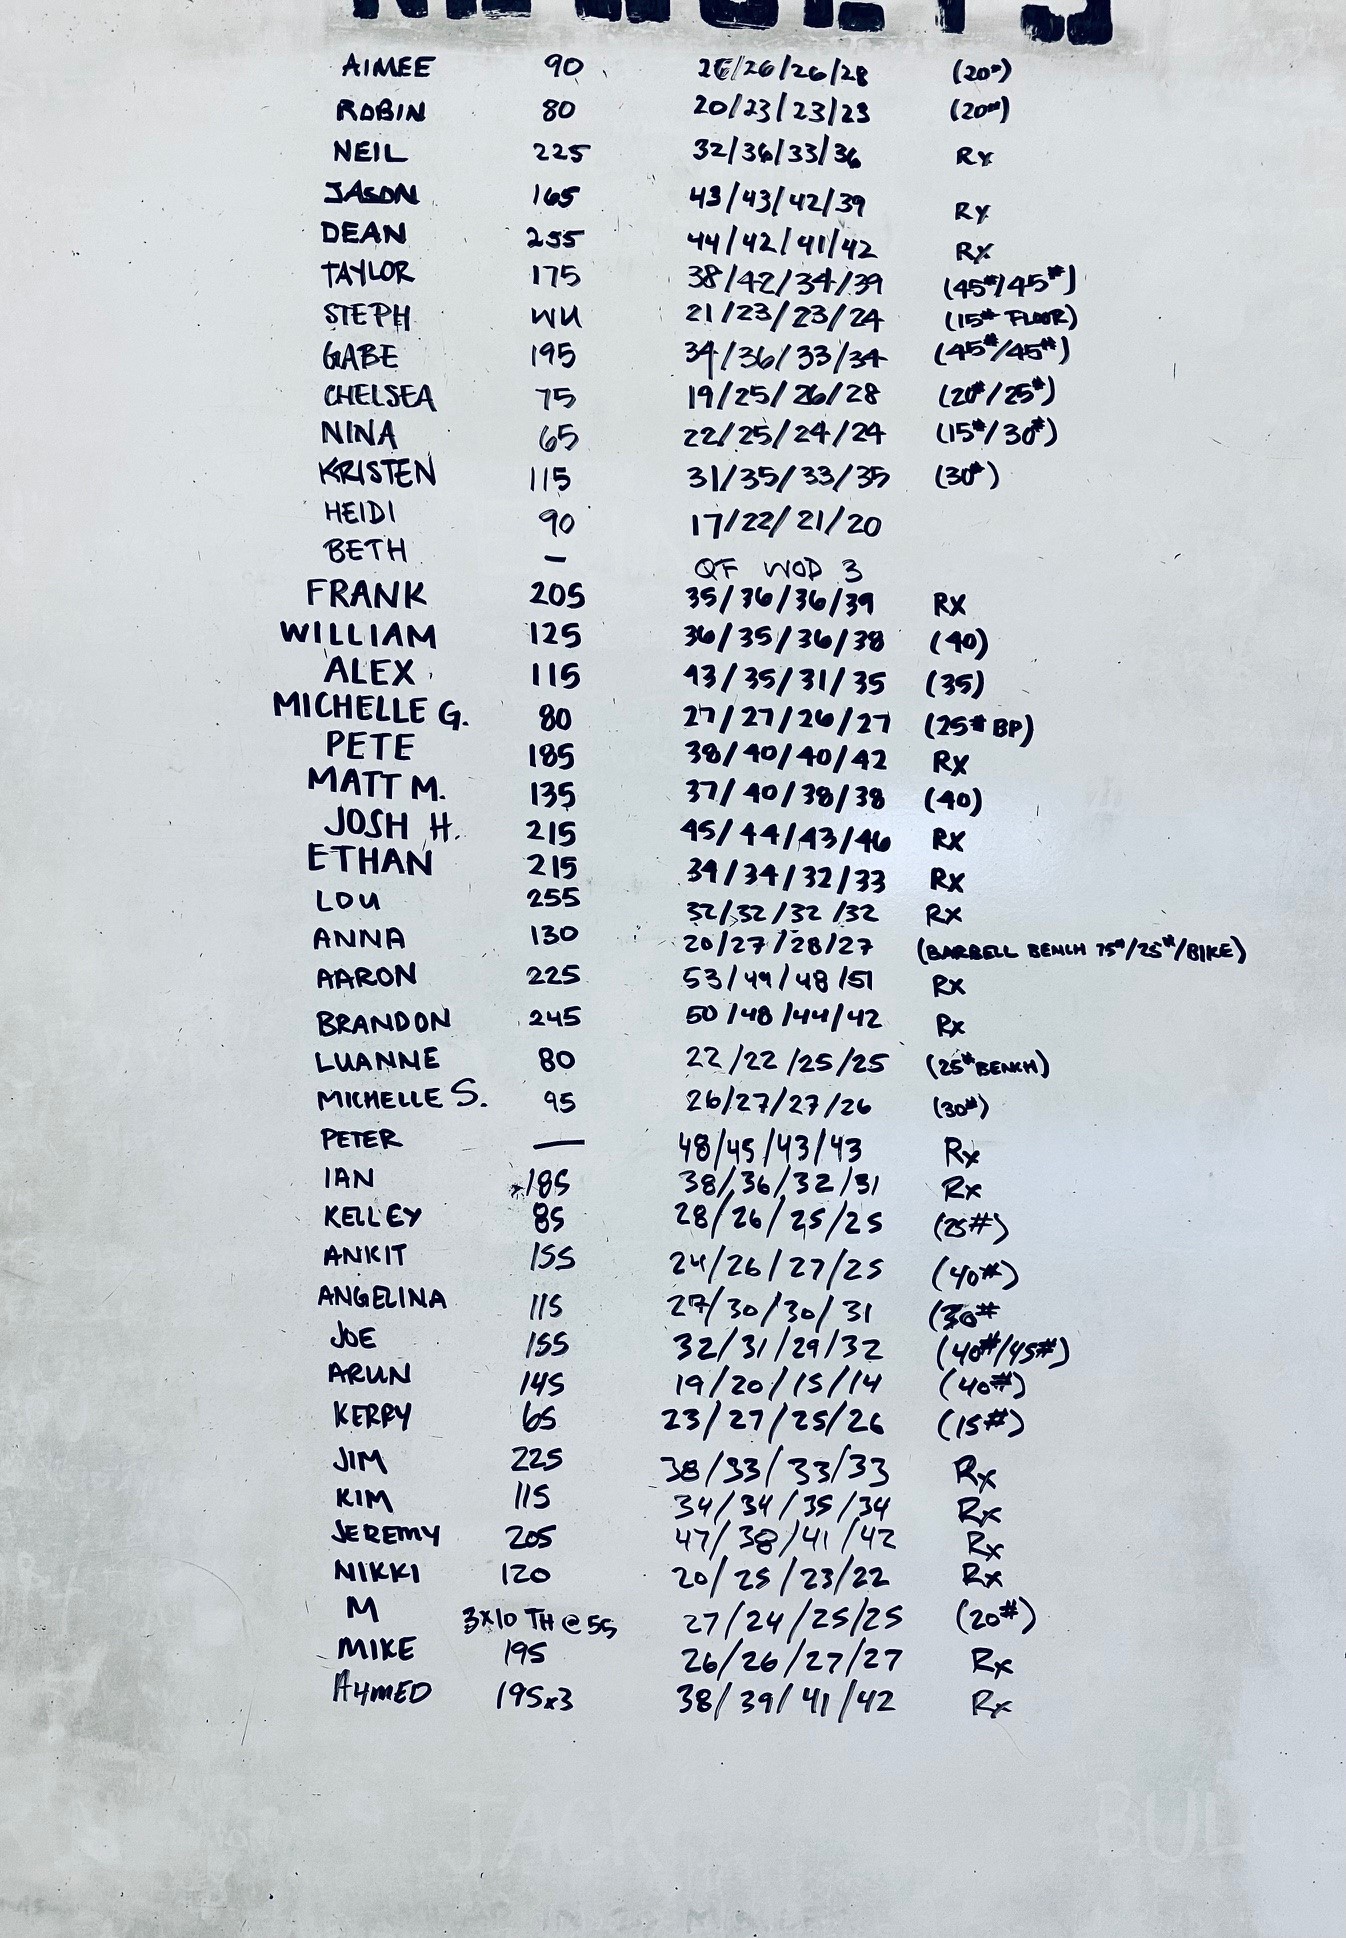 AIMEE 90 26/26/26/28 (20#)
ROBIN 80 20/23/23/23 (20#)
NEIL 225 32/36/33/36 Rx
JASON 165 43/43/42/39 Rx
DEAN 255 44/42/41/42 Rx
TAYLOR 175 38/42/34/39 (45#/45#)
STEPH WU 21/23/23/24 (15# FLOOR)
GABE 195 34/36/33/34 (45#/45#)
CHELSEA 75 19/25/26/28 (20#/25#)
NINA 65 22/25/24/24 (15#/30#)
KRISTEN 115 31/35/33/35 (30#)
HEIDI 90 17/22/21/20
BETH — QF WOD 3
FRANK 205 35/36/36/39 RX
WILLIAM 125 36/35/36/38 (40)
ALEX 115 43/35/31/35 (35)
MICHELLE G. 80 27/27/26/27 (25# BP)
PETE 185 38/40/40/42 RX
MATT M. 135 37/40/38/38 (40)
JOSH H. 215 45/44/43/46 RX
ETHAN 215 34/34/32/33 RX
LOU 255 32/32/32/32 RX
ANNA 130 20/27/28/27 (BARBELL BENCH 75#/25#/BIKE)
AARON 225 53/49/48/51 Rx
BRANDON 245 50/48/44/42 Rx
LUANNE 80 22/22/25/25 (25# BENCH)
MICHELLE S. 95 26/27/27/26 (30#)
PETER — 48/45/43/43 Rx
IAN 185 38/36/32/31 Rx
KELLEY 85 28/26/25/25 (25#)
ANKIT 155 24/26/27/25 (40#)
ANGELINA 115 27/30/30/31 (30#
JOE 155 32/31/29/32 (40#/45#)
ARUN 145 19/20/15/14 (40#)
KERRY 65 23/27/25/26 (15#)
JIM 225 38/33/33/33 Rx
KIM 115 34/34/35/34 Rx
JEREMY 205 47/38/41/42 Rx
NIKKI 120 20/25/23/22 Rx
M 3x10 TH @ 55 27/24/25/25 (20#)
MIKE 195 26/26/27/27 Rx
AHMED 195x3 38/39/41/42 Rx